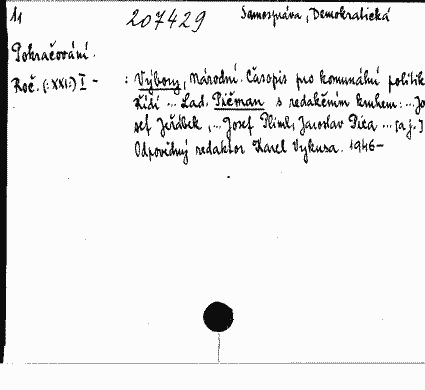 11 207429 Samospráva, Demokratická
Pokračování.
Roč. (:XXI:) I - : Výbory, Národní. Časopis pro komunální politik
Řídí ... Lad. Píčman s redakčním kruhem: ... Jo
sef Jeřábek, ... Josef Pliml, Jaroslav Pica ... [a j.]
Odpovědný redaktor Karel Vykusa. 1946-